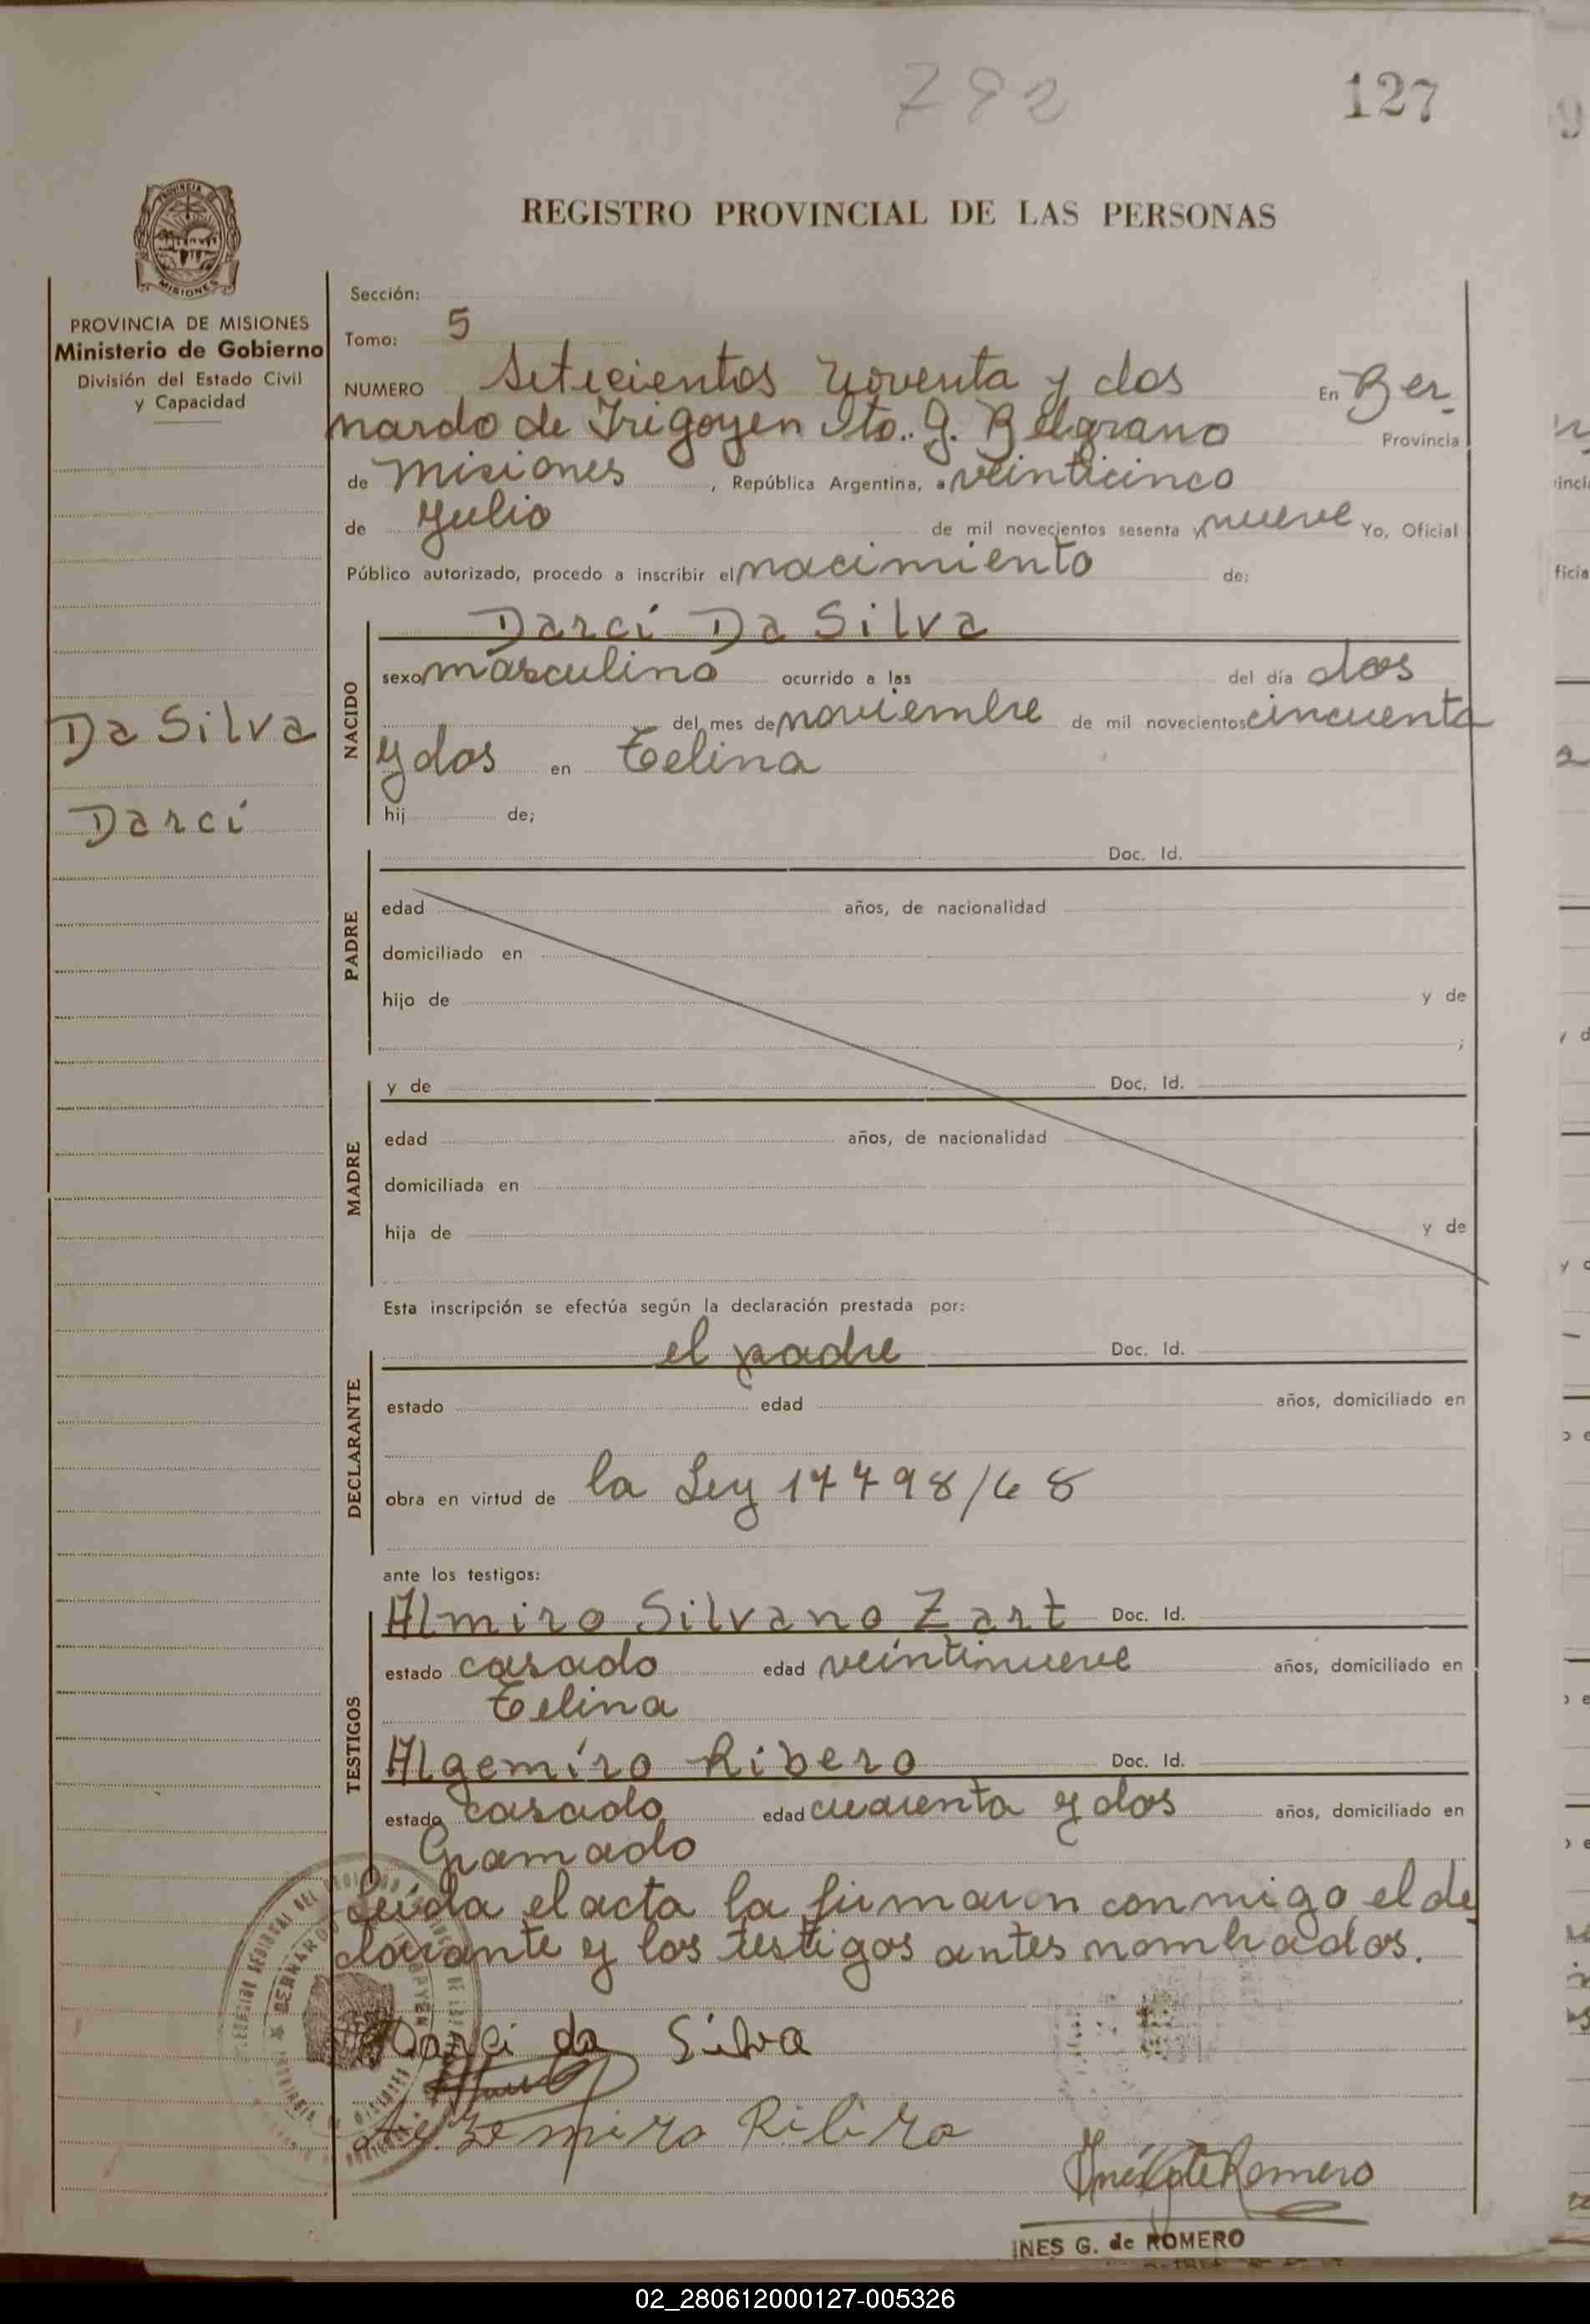 792
127
REGISTRO PROVINCIAL DE LAS PERSONAS
MISIONES
PROVINCIA DE MISIONES
Ministerio de Gobierno
División del Estado Civil
y Capacidad
Da Silva
Darcí
Sección:
Tomo: 5
NUMERO Setecientos noventa y dos En Ber-
nardo de Irigoyen Dto. G. Belgrano Provincia
de Misiones, República Argentina, a veinticinco
de Julio de mil novecientos sesenta y nueve Yo, Oficial
Público autorizado, procedo a inscribir el nacimiento de:
NACIDO
Darcí Da Silva
sexo masculino ocurrido a las del día dos
del mes de noviembre de mil novecientos cincuenta
y dos en Celina
hij de;
PADRE
Doc. Id.
edad años, de nacionalidad
domiciliado en
hijo de y de
;
MADRE
y de Doc. Id.
edad años, de nacionalidad
domiciliada en
hija de y de
Esta inscripción se efectúa según la declaración prestada por:
DECLARANTE
el padre Doc. Id.
estado edad años, domiciliado en
obra en virtud de la Ley 17798/68
ante los testigos:
TESTIGOS
Almiro Silvano Zart Doc. Id.
estado casado edad veintinueve años, domiciliado en
Celina
Algemíro Ribero Doc. Id.
estado casado edad cuarenta y dos años, domiciliado en
Gramado
Leída el acta la firmaron conmigo el de
clarante y los testigos antes nombrados.
Darci da Silva
Ribéro
Romero
INES G. de ROMERO
02_280612000127-005326